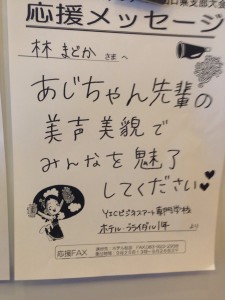 口県支部大会
応援メッセージ
林 まどか さま へ
あじちゃん先輩の
美声美貌で
みんなを魅了
してください♥
YICビジネスアート専門学校
ホテル・ブライダル1年
より
応援FAX